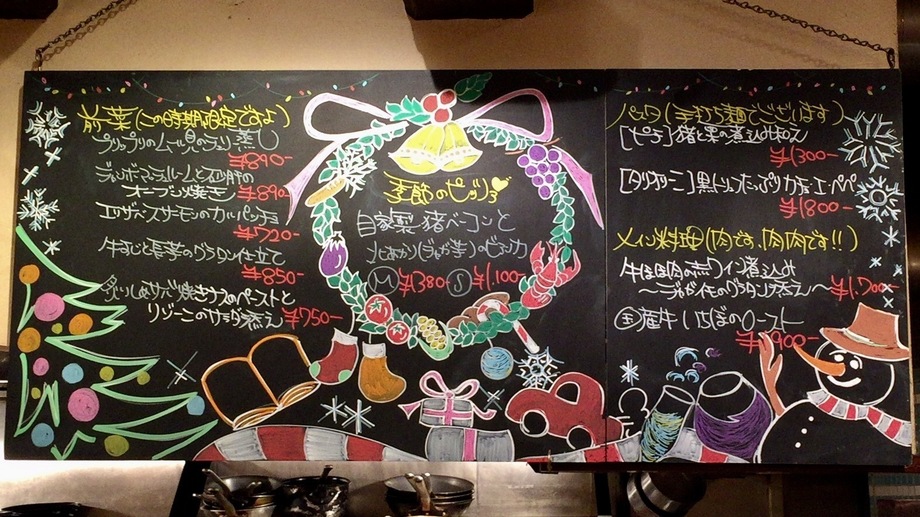 前菜(この時期限定ですよ)
プリップリのムール貝のワイン蒸し
¥890-
ジャンボマッシュルームと砂肝の
オーブン焼き ¥890-
エリザベスサーモンのカルパッチョ
¥720-
牛すじと長芋のグラタン仕立て
¥850-
炙りしめサバ 焼きナスのペーストと
リゾーニのサラダ添え ¥750-
季節のピッツァ
自家製・猪ベーコンと
北あかり(じゃが芋)のビアンカ
M ¥1,380- S ¥1,100-
パスタ(手打ち麺でございます)
[ピチ]猪と栗の煮込み和え
¥1300-
[タリオリーニ]黒トリュフたっぷりカチョエペペ
¥1800-
メイン料理(肉です、肉肉です!!)
牛ほほ肉の赤ワイン煮込み
〜ジャガイモのグラタン添え〜 ¥1,700-
国産牛いちぼのロースト
¥1900-